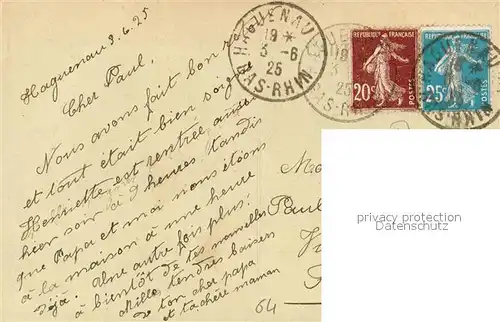 Haguenau 3.6.25
Cher Paul,
Nous avons fait bon re
et tout était bien soigné
Henriette est rentrée
hier soir à 9 heures tandis
que Papa et moi nous étions
à la maison à une heure
déjà. Une autre fois plus.
à bientôt de tes nouvelles
Mille tendres baisers
de ton cher papa
et ta chère maman
HAGUENAU
19 *
3 - 6
25
BAS-RHIN
REPUBLIQUE FRANÇAISE
20c
POSTES
REPUBLIQUE FRANÇAISE
25c
POSTES
HAGUENAU
BAS-RHIN
Paul
64
privacy protection
Datenschutz